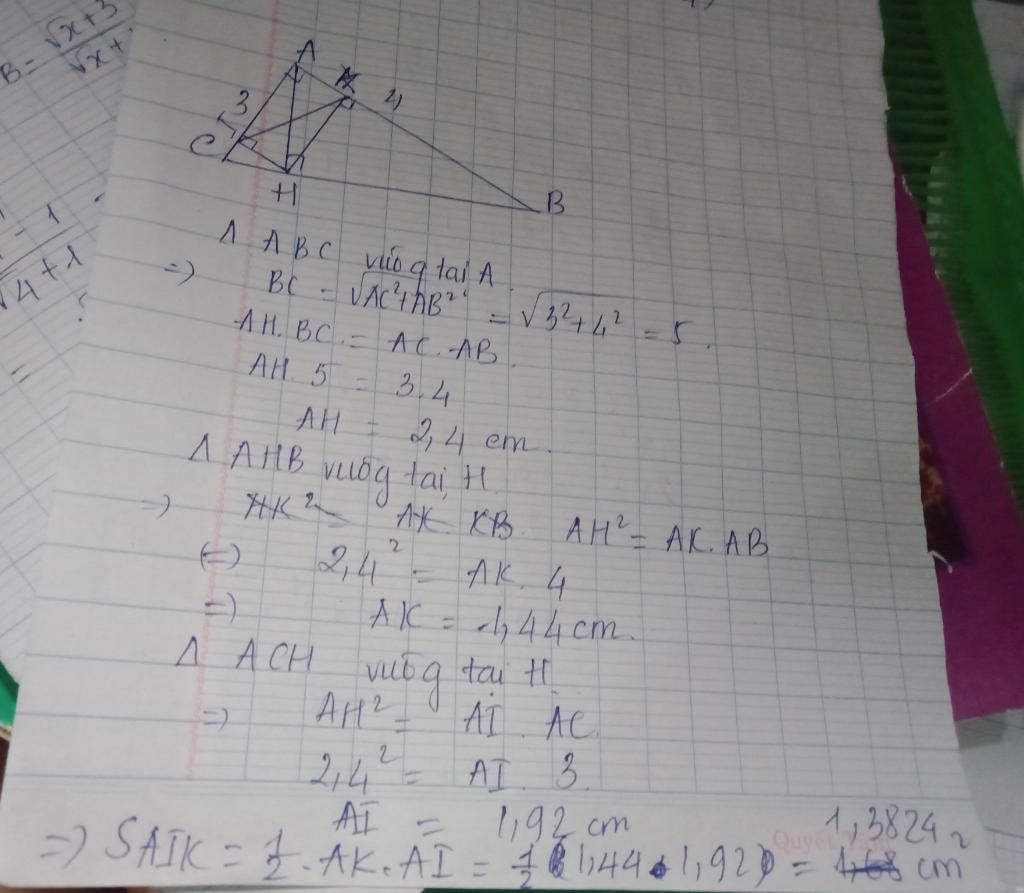 B = √x+3 / √x+
1
√4+1
=
A
3
K
4
I
C
H
B
Δ ABC vuôg tại A.
=> BC = √AC²+AB² = √3²+4² = 5.
AH. BC = AC. AB.
AH. 5 = 3.4
AH = 2,4 cm.
Δ AHB vuôg tại H
=> HK² = AK. KB. AH² = AK. AB
(=) 2,4² = AK. 4
=) AK = 1,44 cm.
Δ ACH vuôg tại H
=) AH² = AI. AC.
2,4² = AI. 3.
AI = 1,92 cm
1,3824
=) SAIK = 1/2 . AK. AI = 1/2 (1,44 . 1,92) = 1,68 cm²